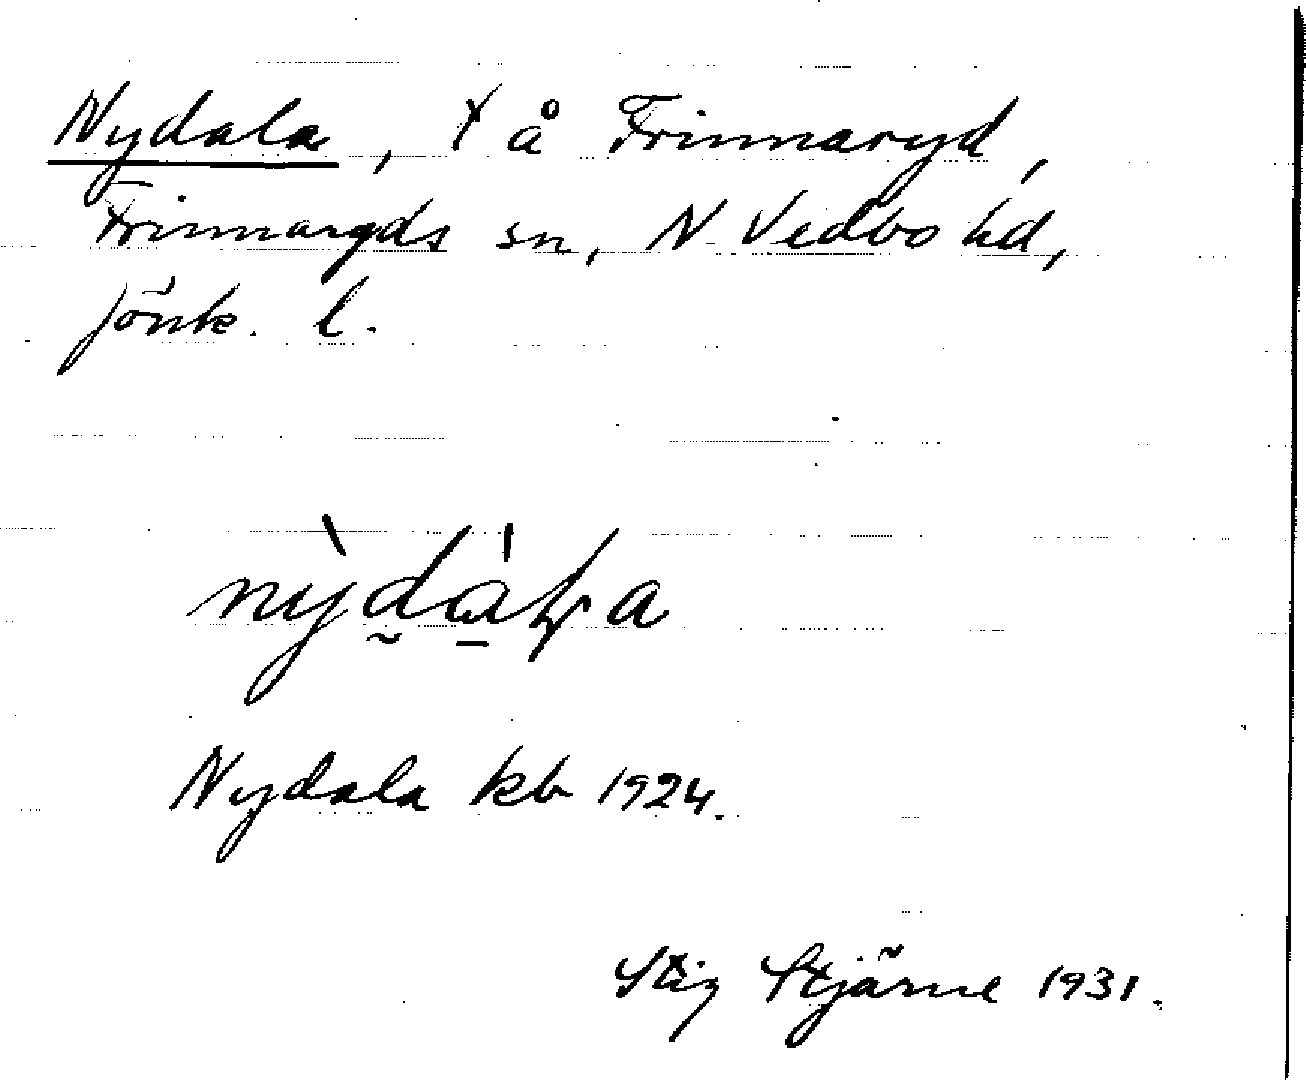 Nydala, t å Frinnaryd,
Frinnaryds sn, N Vedbo hd,
Jönk. l.
nỳdàla
Nydala kb 1924.
Stig Stjärne 1931.